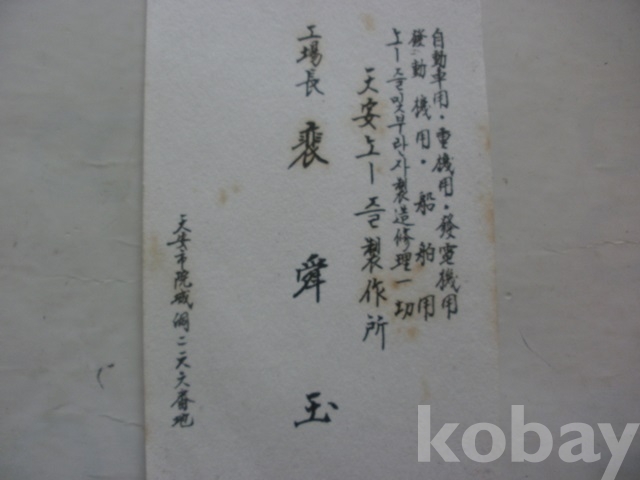 自動車用·電機用·發電機用
發動機用·船舶用
노ー즐및부란자製造修理一切
天安노ー즐製作所
工場長 裵舜玉
天安市院城洞二六六番地
kobay